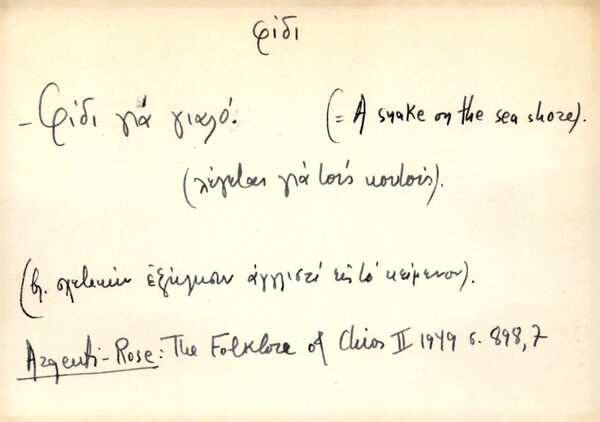 φίδι
- Φίδι γιά γιαλό. (= A snake on the sea shore).
(λέγεται γιά τούς κουτούς).
(βλ. σχετικήν ἐξήγησιν ἀγγλιστί εἰς τό κείμενον).
Argenti-Rose: The Folklore of Chios II 1949 σ. 898,7